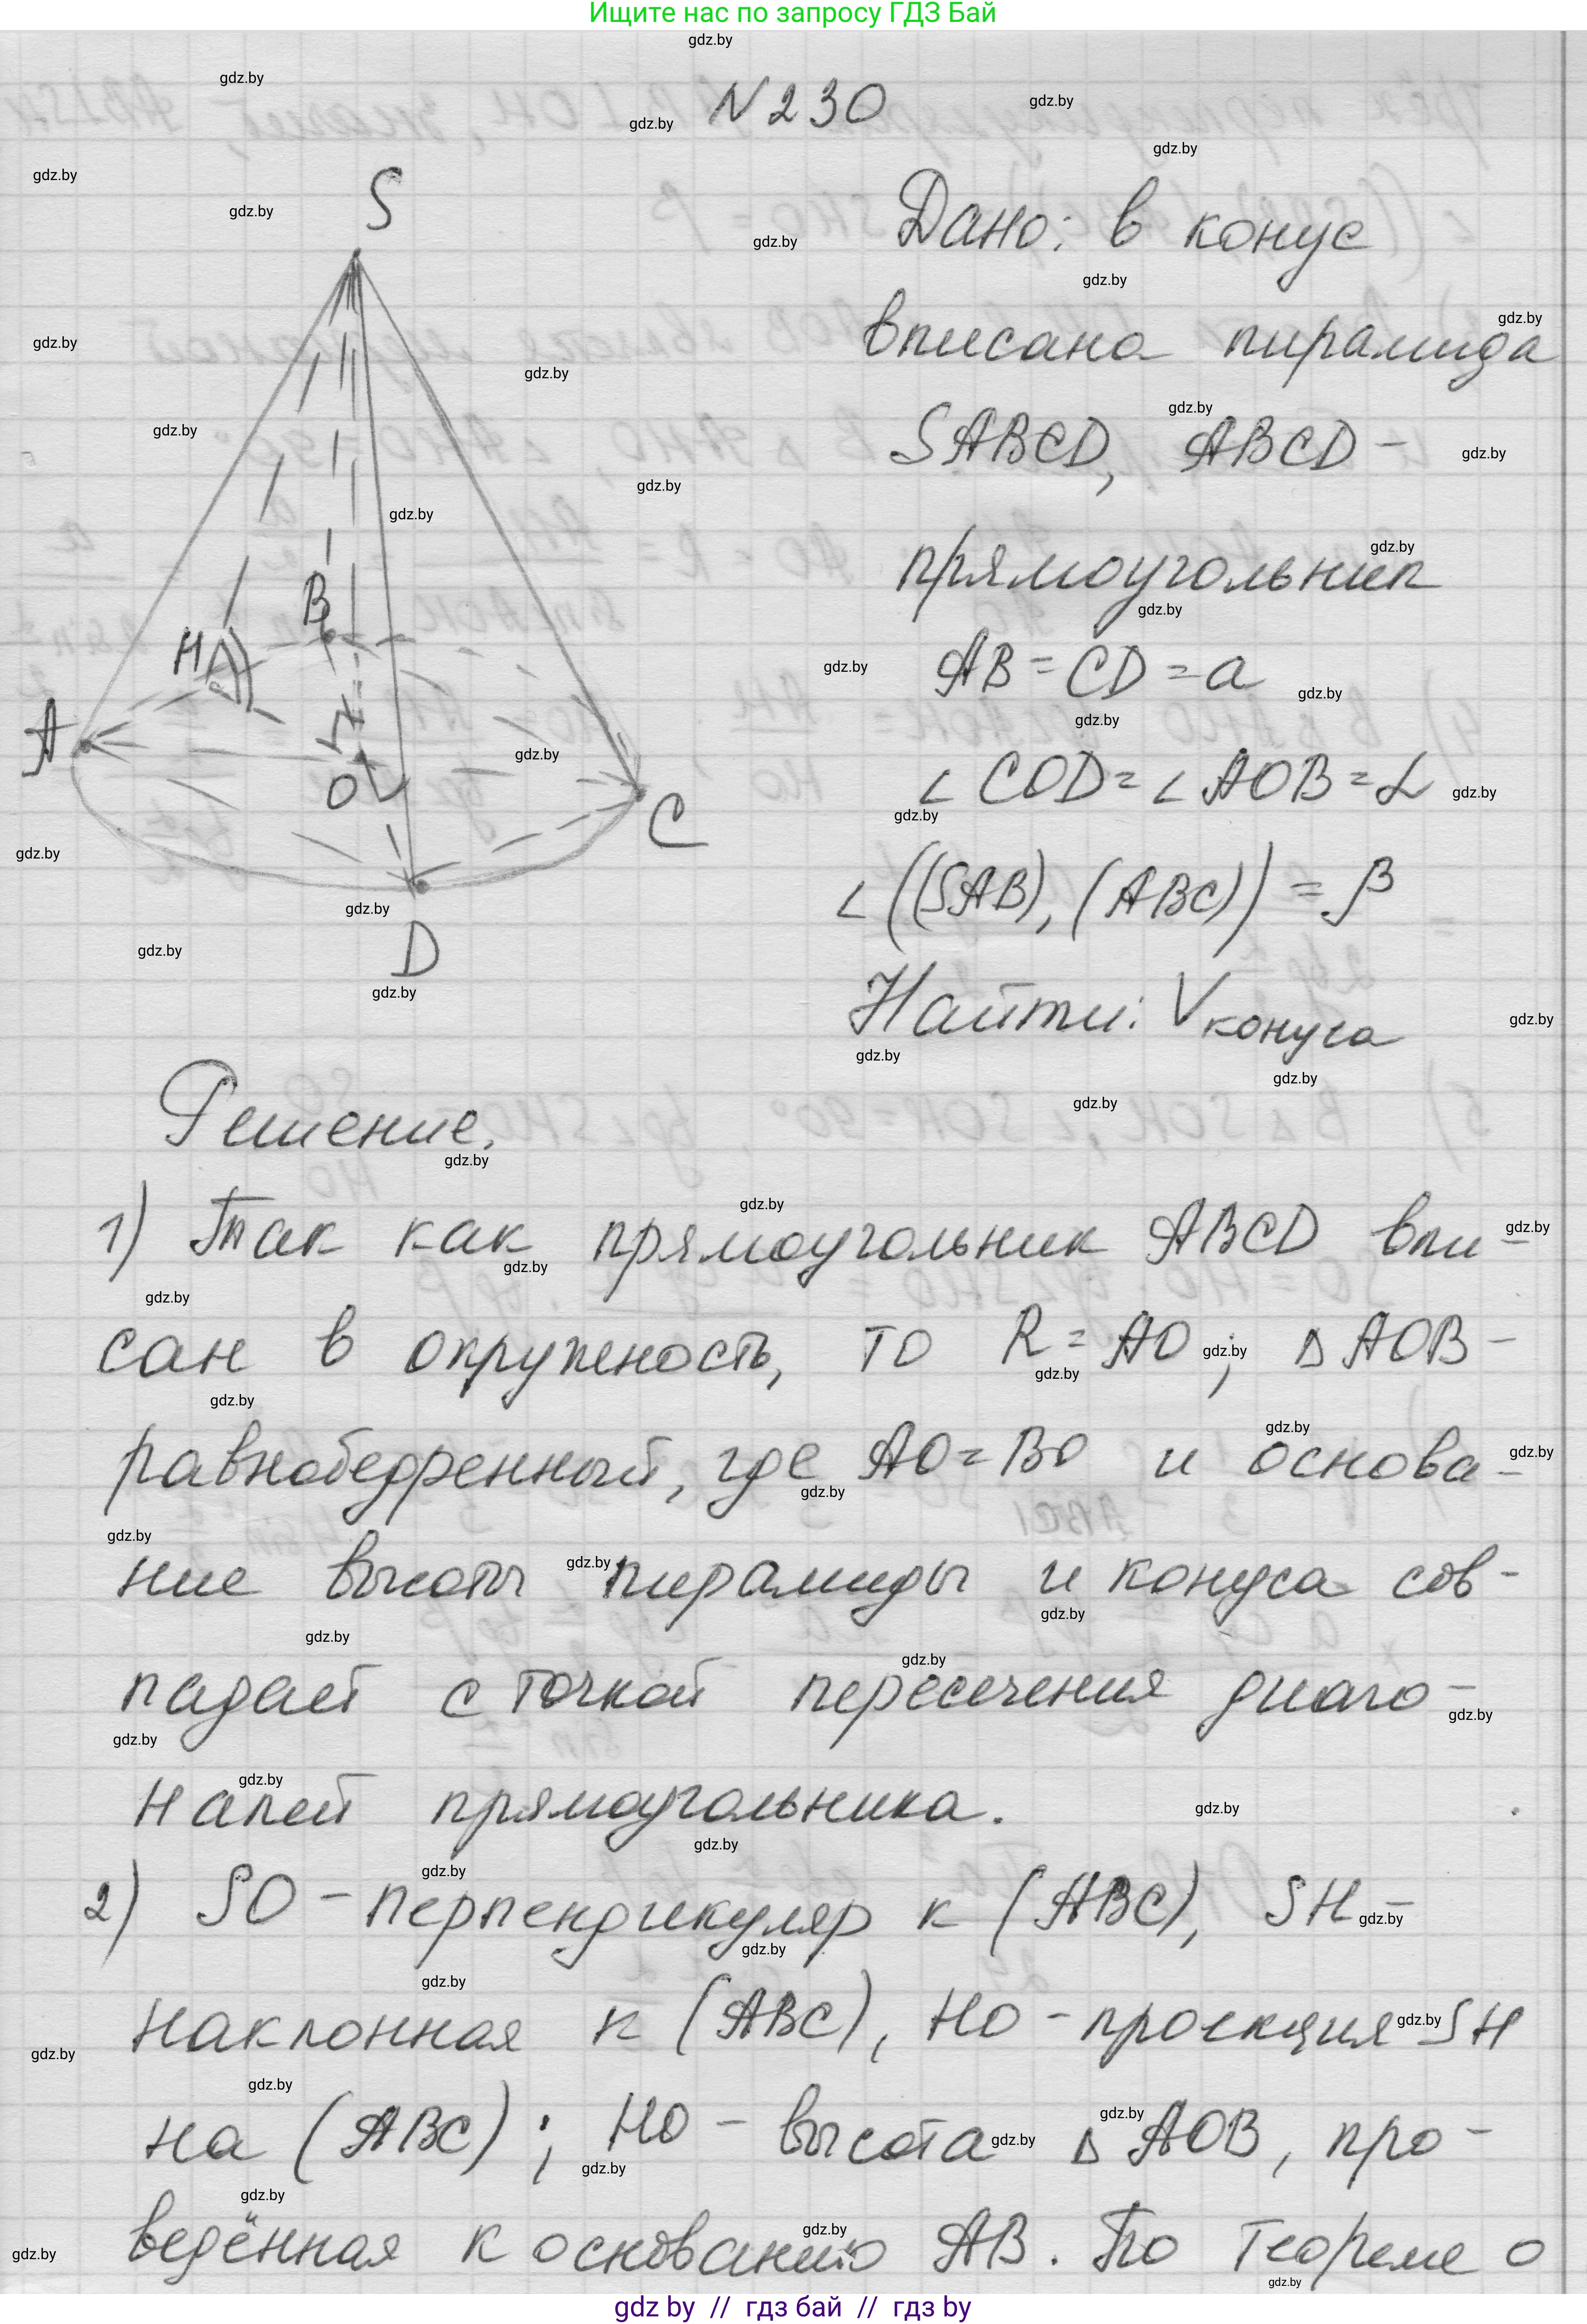 Ищите нас по запросу ГДЗ Бай
N 230
S
B
H
A
O
C
D
Дано: в конус
вписана пирамида
SABCD, ABCD -
прямоугольник
AB = CD = a
∠ COD = ∠ AOB = α
∠ ((SAB), (ABC)) = β
Найти: V конуса
Решение.
1) Так как прямоугольник ABCD впи-
сан в окружность, то R = AO; Δ AOB -
равнобедренный, где AO = BO и основа-
ние высоты пирамиды и конуса сов-
падает с точкой пересечения диаго-
налей прямоугольника.
2) SO - перпендикуляр к (ABC), SH -
наклонная к (ABC), HO - проекция SH
на (ABC); HO - высота Δ AOB, про-
ведённая к основанию AB. По теореме о
gdz.by
gdz by // гдз бай // гдз by